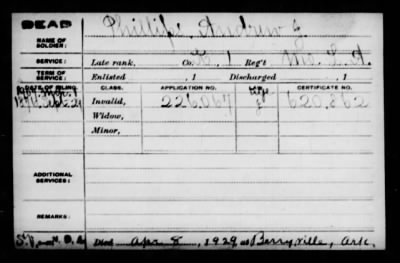 DEAD
NAME OF SOLDIER: Phillips, Andrew J.
SERVICE: Late rank, Co. K. 1 Reg't Mo. L. A.
TERM OF SERVICE: Enlisted , 1 Discharged , 1
DATE OF FILING. CLASS. APPLICATION NO. CERTIFICATE NO.
Invalid, 226,067 620,862
Widow,
Minor,
ADDITIONAL SERVICES:
REMARKS:
Died Apr 8, 1929, at Berryville, Ark.